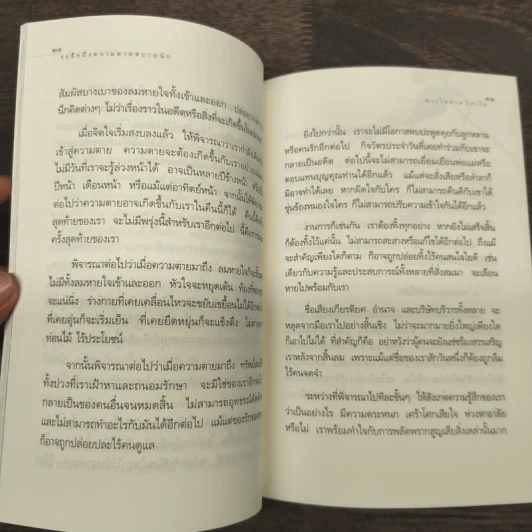 ๒๑
ระลึกถึงความตายสบายนัก
สัมผัสบางเบาของลมหายใจทั้งเข้าและออก ปล่อยวาง
นึกคิดต่างๆ ไม่ว่าเรื่องราวในอดีตหรือสิ่งที่จะเกิดขึ้นใน
เมื่อจิตใจเริ่มสงบลงแล้ว ให้พิจารณาว่าเรากำลัง
เข้าสู่ความตาย ความตายจะต้องเกิดขึ้นกับเราอย่าง
ไม่มีวันที่เราจะรู้ล่วงหน้าได้ อาจเป็นหลายปีข้างหน้า หรือ
ปีหน้า เดือนหน้า หรือแม้แต่อาทิตย์หน้า จากนั้นให้
ต่อไปว่าความตายอาจเกิดขึ้นกับเราในคืนนี้ก็ได้ คืนนี้
สุดท้ายของเรา จะไม่มีพรุ่งนี้สำหรับเราอีกต่อไป นี้คือ
ครั้งสุดท้ายของเรา
พิจารณาต่อไปว่าเมื่อความตายมาถึง ลมหายใจก็จะ
ไม่มีทั้งลมหายใจเข้าและออก หัวใจจะหยุดเต้น ท้อง
จะแน่นิ่ง ร่างกายที่เคยเคลื่อนไหวจะขยับเขยื้อนไม่ได้อีก
ที่เคยอุ่นก็จะเริ่มเย็น ที่เคยยืดหยุ่นก็จะแข็งตึง ไม่ต่าง
ท่อนไม้ ไร้ประโยชน์
จากนั้นพิจารณาต่อไปว่าเมื่อความตายมาถึง ทรัพย์
ทั้งปวงที่เราเฝ้าหาและถนอมรักษา จะมิใช่ของเราอีก
กลายเป็นของคนอื่นจนหมดสิ้น ไม่สามารถอุทธรณ์ได้
และไม่สามารถทำอะไรกับมันได้อีกต่อไป แม้แต่ของรัก
ก็อาจถูกปล่อยปละไร้คนดูแล
ยิ่งไปกว่านั้น เราจะไม่มีโอกาสพบปะพูดคุยกับลูกหลาน
หรือคนรักอีกต่อไป กิจวัตรประจำวันที่เคยทำร่วมกับเราจะ
กลายเป็นอดีต ต่อไปนี้จะไม่สามารถเยี่ยมเยือนพ่อแม่หรือ
ตอบแทนบุญคุณท่านได้อีกแล้ว แม้แต่จะสั่งเสียหรือล่ำลาก็
มิอาจทำได้เลย หากผิดใจกับใคร ก็ไม่สามารถคืนดีกับเขาได้
ขุ่นข้องหมองใจใคร ก็ไม่สามารถปรับความเข้าใจกันได้อีกแล้ว
งานการก็เช่นกัน เราต้องทิ้งทุกอย่าง หากยังไม่เสร็จสิ้น
ก็ต้องทิ้งไว้แค่นั้น ไม่สามารถสะสางหรือแก้ไขได้อีกต่อไป ถึงแม้
จะสำคัญเพียงใดก็ตาม ก็อาจถูกปล่อยทิ้งไร้คนสนใจไยดี เช่น
เดียวกับความรู้และประสบการณ์ทั้งหลายที่สั่งสมมา จะเลือน
หายไปพร้อมกับเรา
ชื่อเสียงเกียรติยศ อำนาจ และบริษัทบริวารทั้งหลาย จะ
หลุดจากมือเราไปอย่างสิ้นเชิง ไม่ว่าจะมากมายยิ่งใหญ่เพียงใด
ก็เอาไปไม่ได้ ที่สำคัญก็คือ อย่าหวังว่าผู้คนจะยังแซ่ซร้องสรรเสริญ
เราหลังจากสิ้นลม เพราะแม้แต่ชื่อของเราสักวันหนึ่งก็ต้องถูกลืม
ไร้คนจดจำ
ระหว่างที่พิจารณาไปทีละขั้นๆ ให้สังเกตความรู้สึกของเรา
ว่าเป็นอย่างไร มีความตระหนก เศร้าโศกเสียใจ ห่วงหาอาลัย
หรือไม่ เราพร้อมทำใจกับการพลัดพรากสูญเสียสิ่งเหล่านั้นมาก